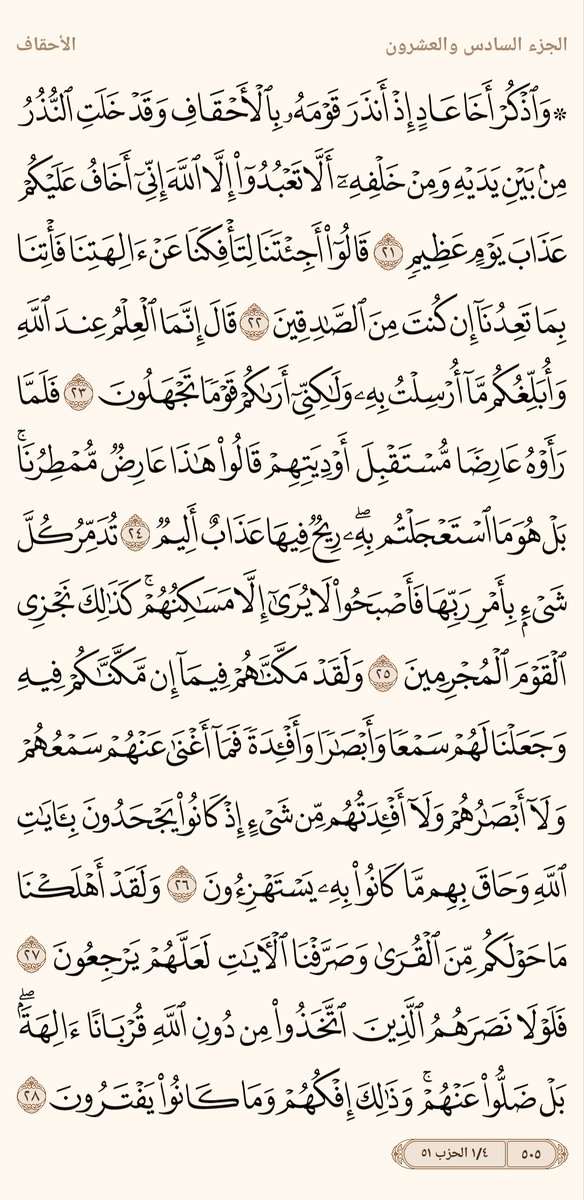 الجزء السادس والعشرون
الأحقاف
۞ وَٱذۡكُرۡ أَخَا عَادٍ إِذۡ أَنذَرَ قَوۡمَهُۥ بِٱلۡأَحۡقَافِ وَقَدۡ خَلَتِ ٱلنُّذُرُ
مِنۢ بَيۡنِ يَدَيۡهِ وَمِنۡ خَلۡفِهِۦٓ أَلَّا تَعۡبُدُوٓاْ إِلَّا ٱللَّهَ إِنِّيٓ أَخَافُ عَلَيۡكُمۡ
عَذَابَ يَوۡمٍ عَظِيمٖ ٢١ قَالُوٓاْ أَجِئۡتَنَا لِتَأۡفِكَنَا عَنۡ ءَالِهَتِنَا فَأۡتِنَا
بِمَا تَعِدُنَآ إِن كُنتَ مِنَ ٱلصَّٰدِقِينَ ٢٢ قَالَ إِنَّمَا ٱلۡعِلۡمُ عِندَ ٱللَّهِ
وَأُبَلِّغُكُم مَّآ أُرۡسِلۡتُ بِهِۦ وَلَٰكِنِّيٓ أَرَىٰكُمۡ قَوۡمٗا تَجۡهَلُونَ ٢٣ فَلَمَّا
رَأَوۡهُ عَارِضٗا مُّسۡتَقۡبِلَ أَوۡدِيَتِهِمۡ قَالُواْ هَٰذَا عَارِضٞ مُّمۡطِرُنَاۚ
بَلۡ هُوَ مَا ٱسۡتَعۡجَلۡتُم بِهِۦۖ رِيحٞ فِيهَا عَذَابٌ أَلِيمٞ ٢٤ تُدَمِّرُ كُلَّ
شَيۡءِۭ بِأَمۡرِ رَبِّهَا فَأَصۡبَحُواْ لَا يُرَىٰٓ إِلَّا مَسَٰكِنُهُمۡۚ كَذَٰلِكَ نَجۡزِي
ٱلۡقَوۡمَ ٱلۡمُجۡرِمِينَ ٢٥ وَلَقَدۡ مَكَّنَّٰهُمۡ فِيمَآ إِن مَّكَّنَّٰكُمۡ فِيهِ
وَجَعَلۡنَا لَهُمۡ سَمۡعٗا وَأَبۡصَٰرٗا وَأَفۡـِٔدَةٗ فَمَآ أَغۡنَىٰ عَنۡهُمۡ سَمۡعُهُمۡ
وَلَآ أَبۡصَٰرُهُمۡ وَلَآ أَفۡـِٔدَتُهُم مِّن شَيۡءٍ إِذۡ كَانُواْ يَجۡحَدُونَ بِـَٔايَٰتِ
ٱللَّهِ وَحَاقَ بِهِم مَّا كَانُواْ بِهِۦ يَسۡتَهۡزِءُونَ ٢٦ وَلَقَدۡ أَهۡلَكۡنَا
مَا حَوۡلَكُم مِّنَ ٱلۡقُرَىٰ وَصَرَّفۡنَا ٱلۡأٓيَٰتِ لَعَلَّهُمۡ يَرۡجِعُونَ ٢٧
فَلَوۡلَا نَصَرَهُمُ ٱلَّذِينَ ٱتَّخَذُواْ مِن دُونِ ٱللَّهِ قُرۡبَانًا ءَالِهَةَۢۖ
بَلۡ ضَلُّواْ عَنۡهُمۡۚ وَذَٰلِكَ إِفۡكُهُمۡ وَمَا كَانُواْ يَفۡتَرُونَ ٢٨
٥٠٥
١/٤ الحزب ٥١